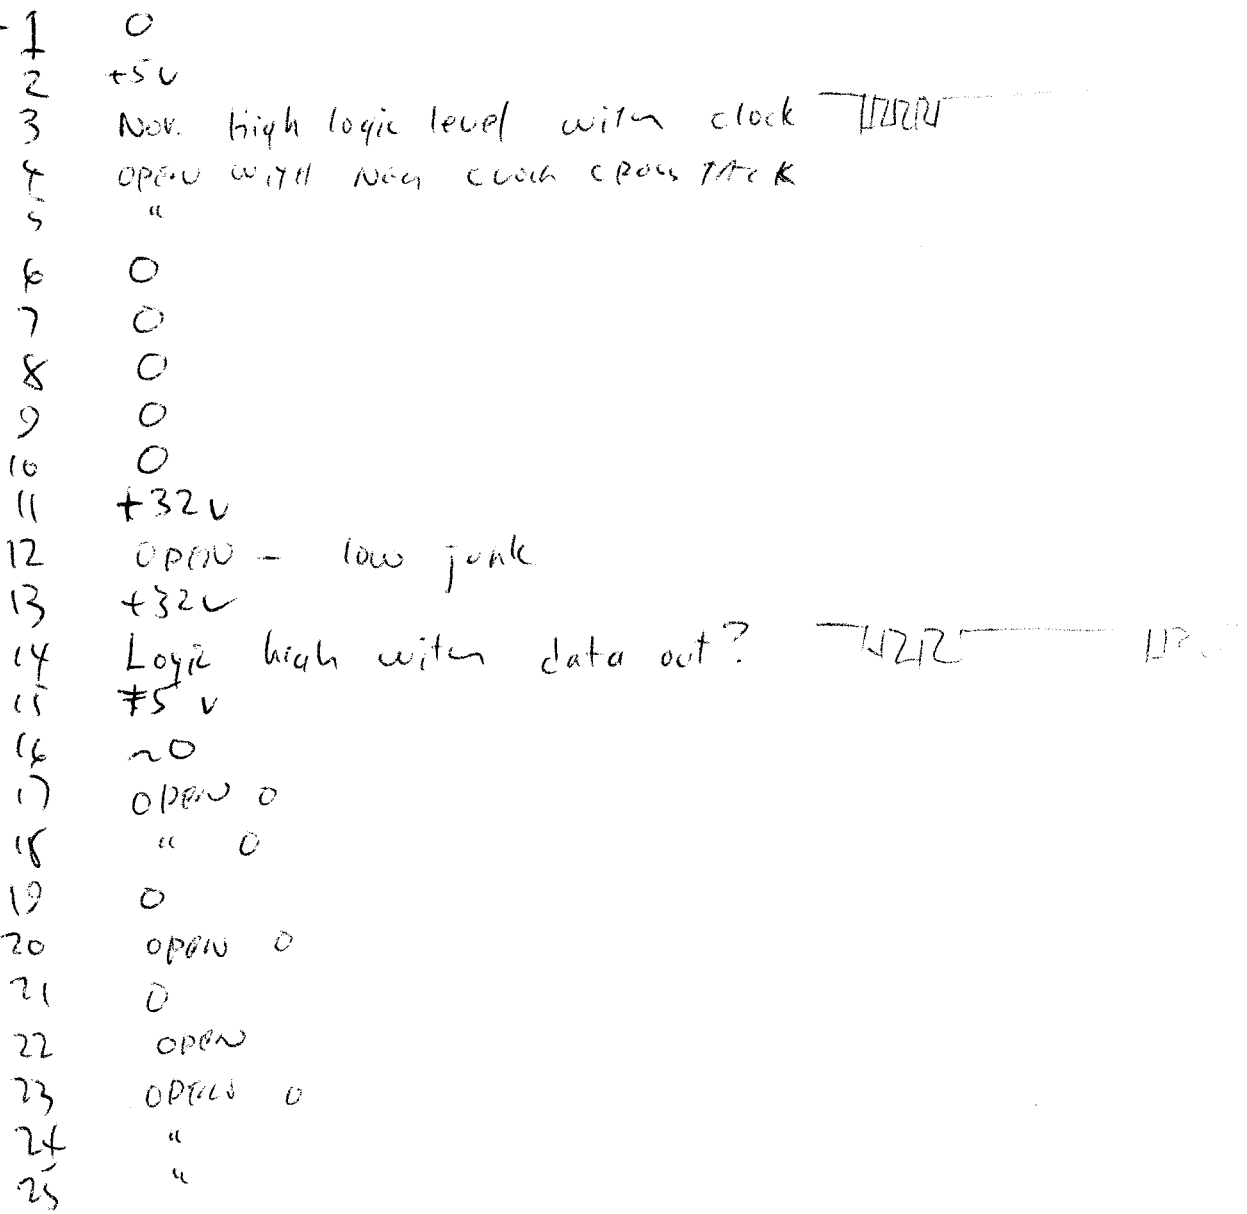 1 0
2 +5v
3 Nor. high logic level with clock
4 OPEN WITH clock CROSS TALK
5 "
6 0
7 0
8 0
9 0
10 0
11 +32v
12 OPEN - low junk
13 +32v
14 Logic high with data out?
15 +5 v
16 ~0
17 OPEN 0
18 " 0
19 0
20 OPEN 0
21 0
22 OPEN
23 OPEN 0
24 "
25 "